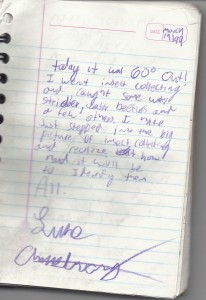 DATE March
19 99
today it was 60° Out!
I went insect collecting
and caught some water
striders, water beetles and
a few others. I have
just stepped into the big
picture of insect collecting
and realize how
hard it will be
to identify them
All.
Luke
Armstrong